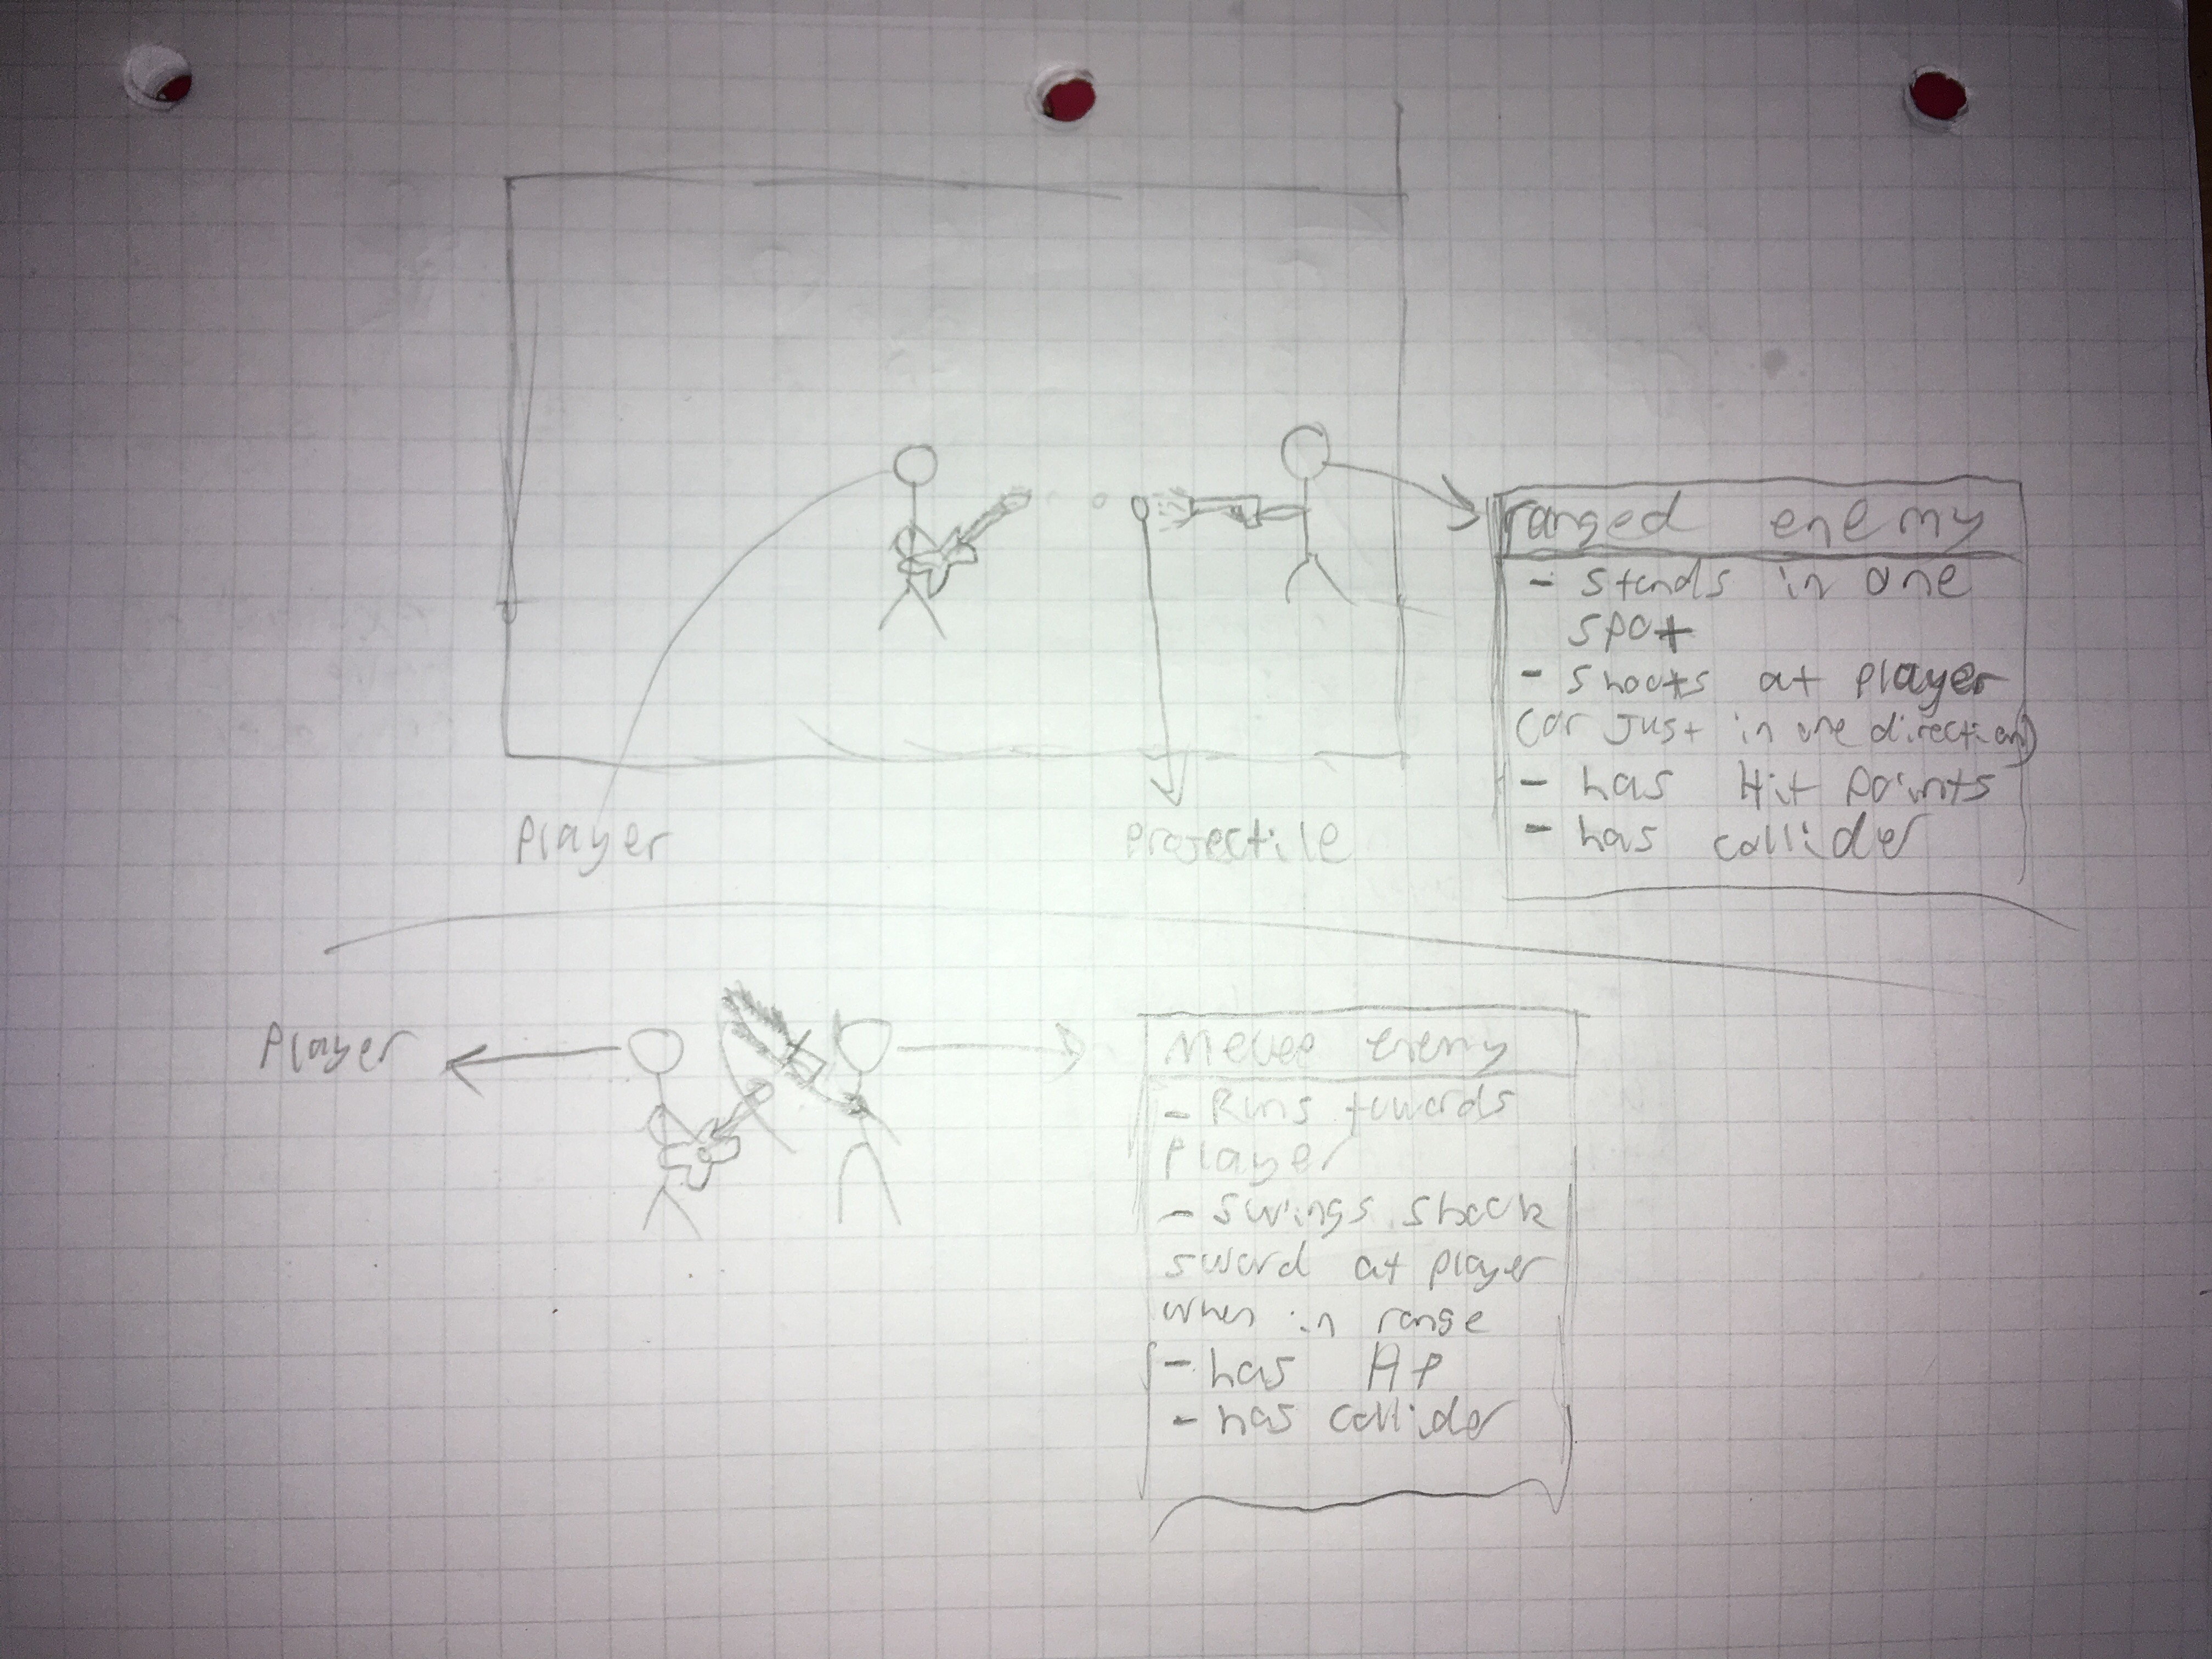 ranged enemy
- stands in one
spot
- shoots at player
(or Just in one direction)
- has Hit points
- has collider
Player
Projectile
Player
Melee enemy
- Runs towards
Player
- Swings shock
sword at player
when in range
- has HP
- has collider